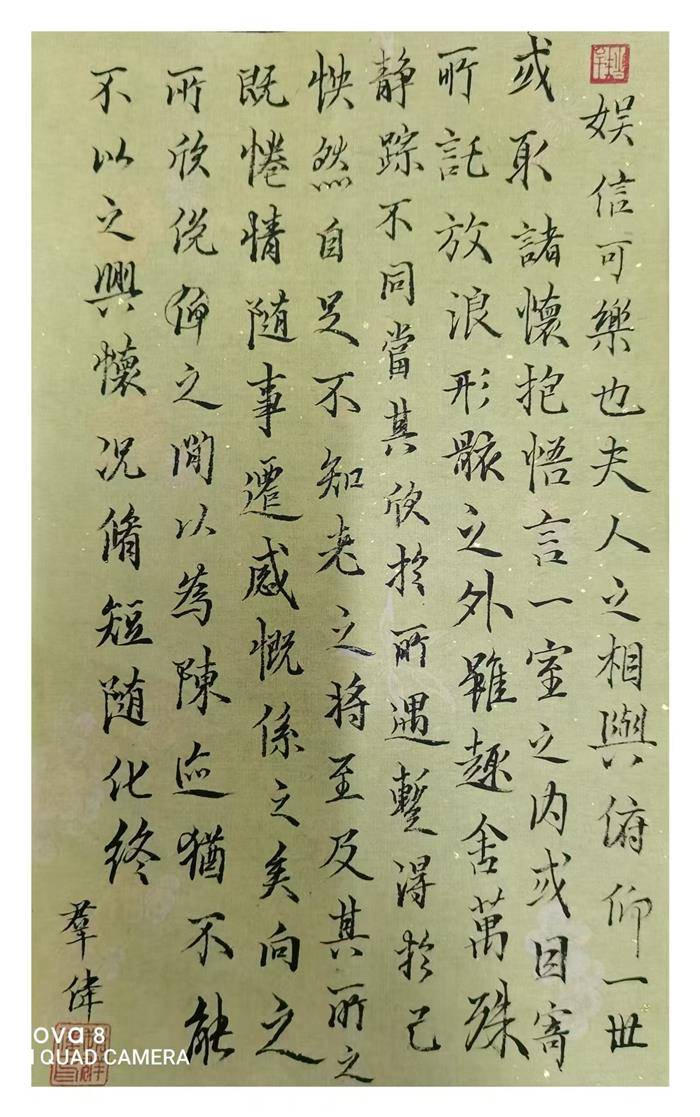 娱信可樂也夫人之相與俯仰一世
或取諸懷抱悟言一室之内或因寄
所託放浪形骸之外雖趣舍萬殊
静踪不同當其欣於所遇暫得於己
怏然自足不知老之將至及其所之
既惓情随事遷感慨係之矣向之
所欣俛仰之間以為陳迹猶不能
不以之興懷况脩短随化終
羣偉
ova 8
QUAD CAMERA